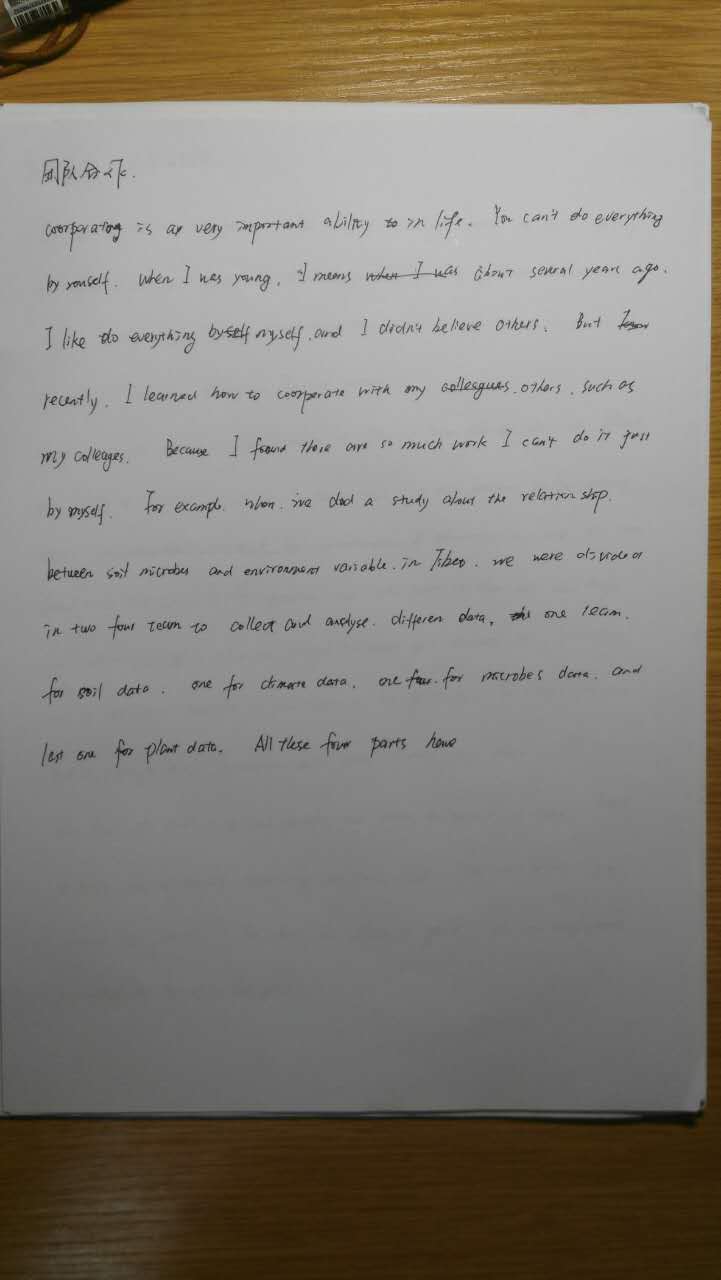 团队合作.
coorporating is a very important ability to in life. You can't do everything
by youself. When I was young, I means when I was about several years ago.
I like do everything by self myself, and I didn't believe others. But
recently, I learned how to coorperate with my colleagues others, such as
my colleages. Because I found there are so much work I can't do it just
by myself. For example, when we did a study about the relationship
between soil microbes and environment variable in Tibet. we were divided
in two four team to collect and analyse differen data, one team
for soil data. one for climate data, one four for microbes data, and
last one for plant data. All these four parts have